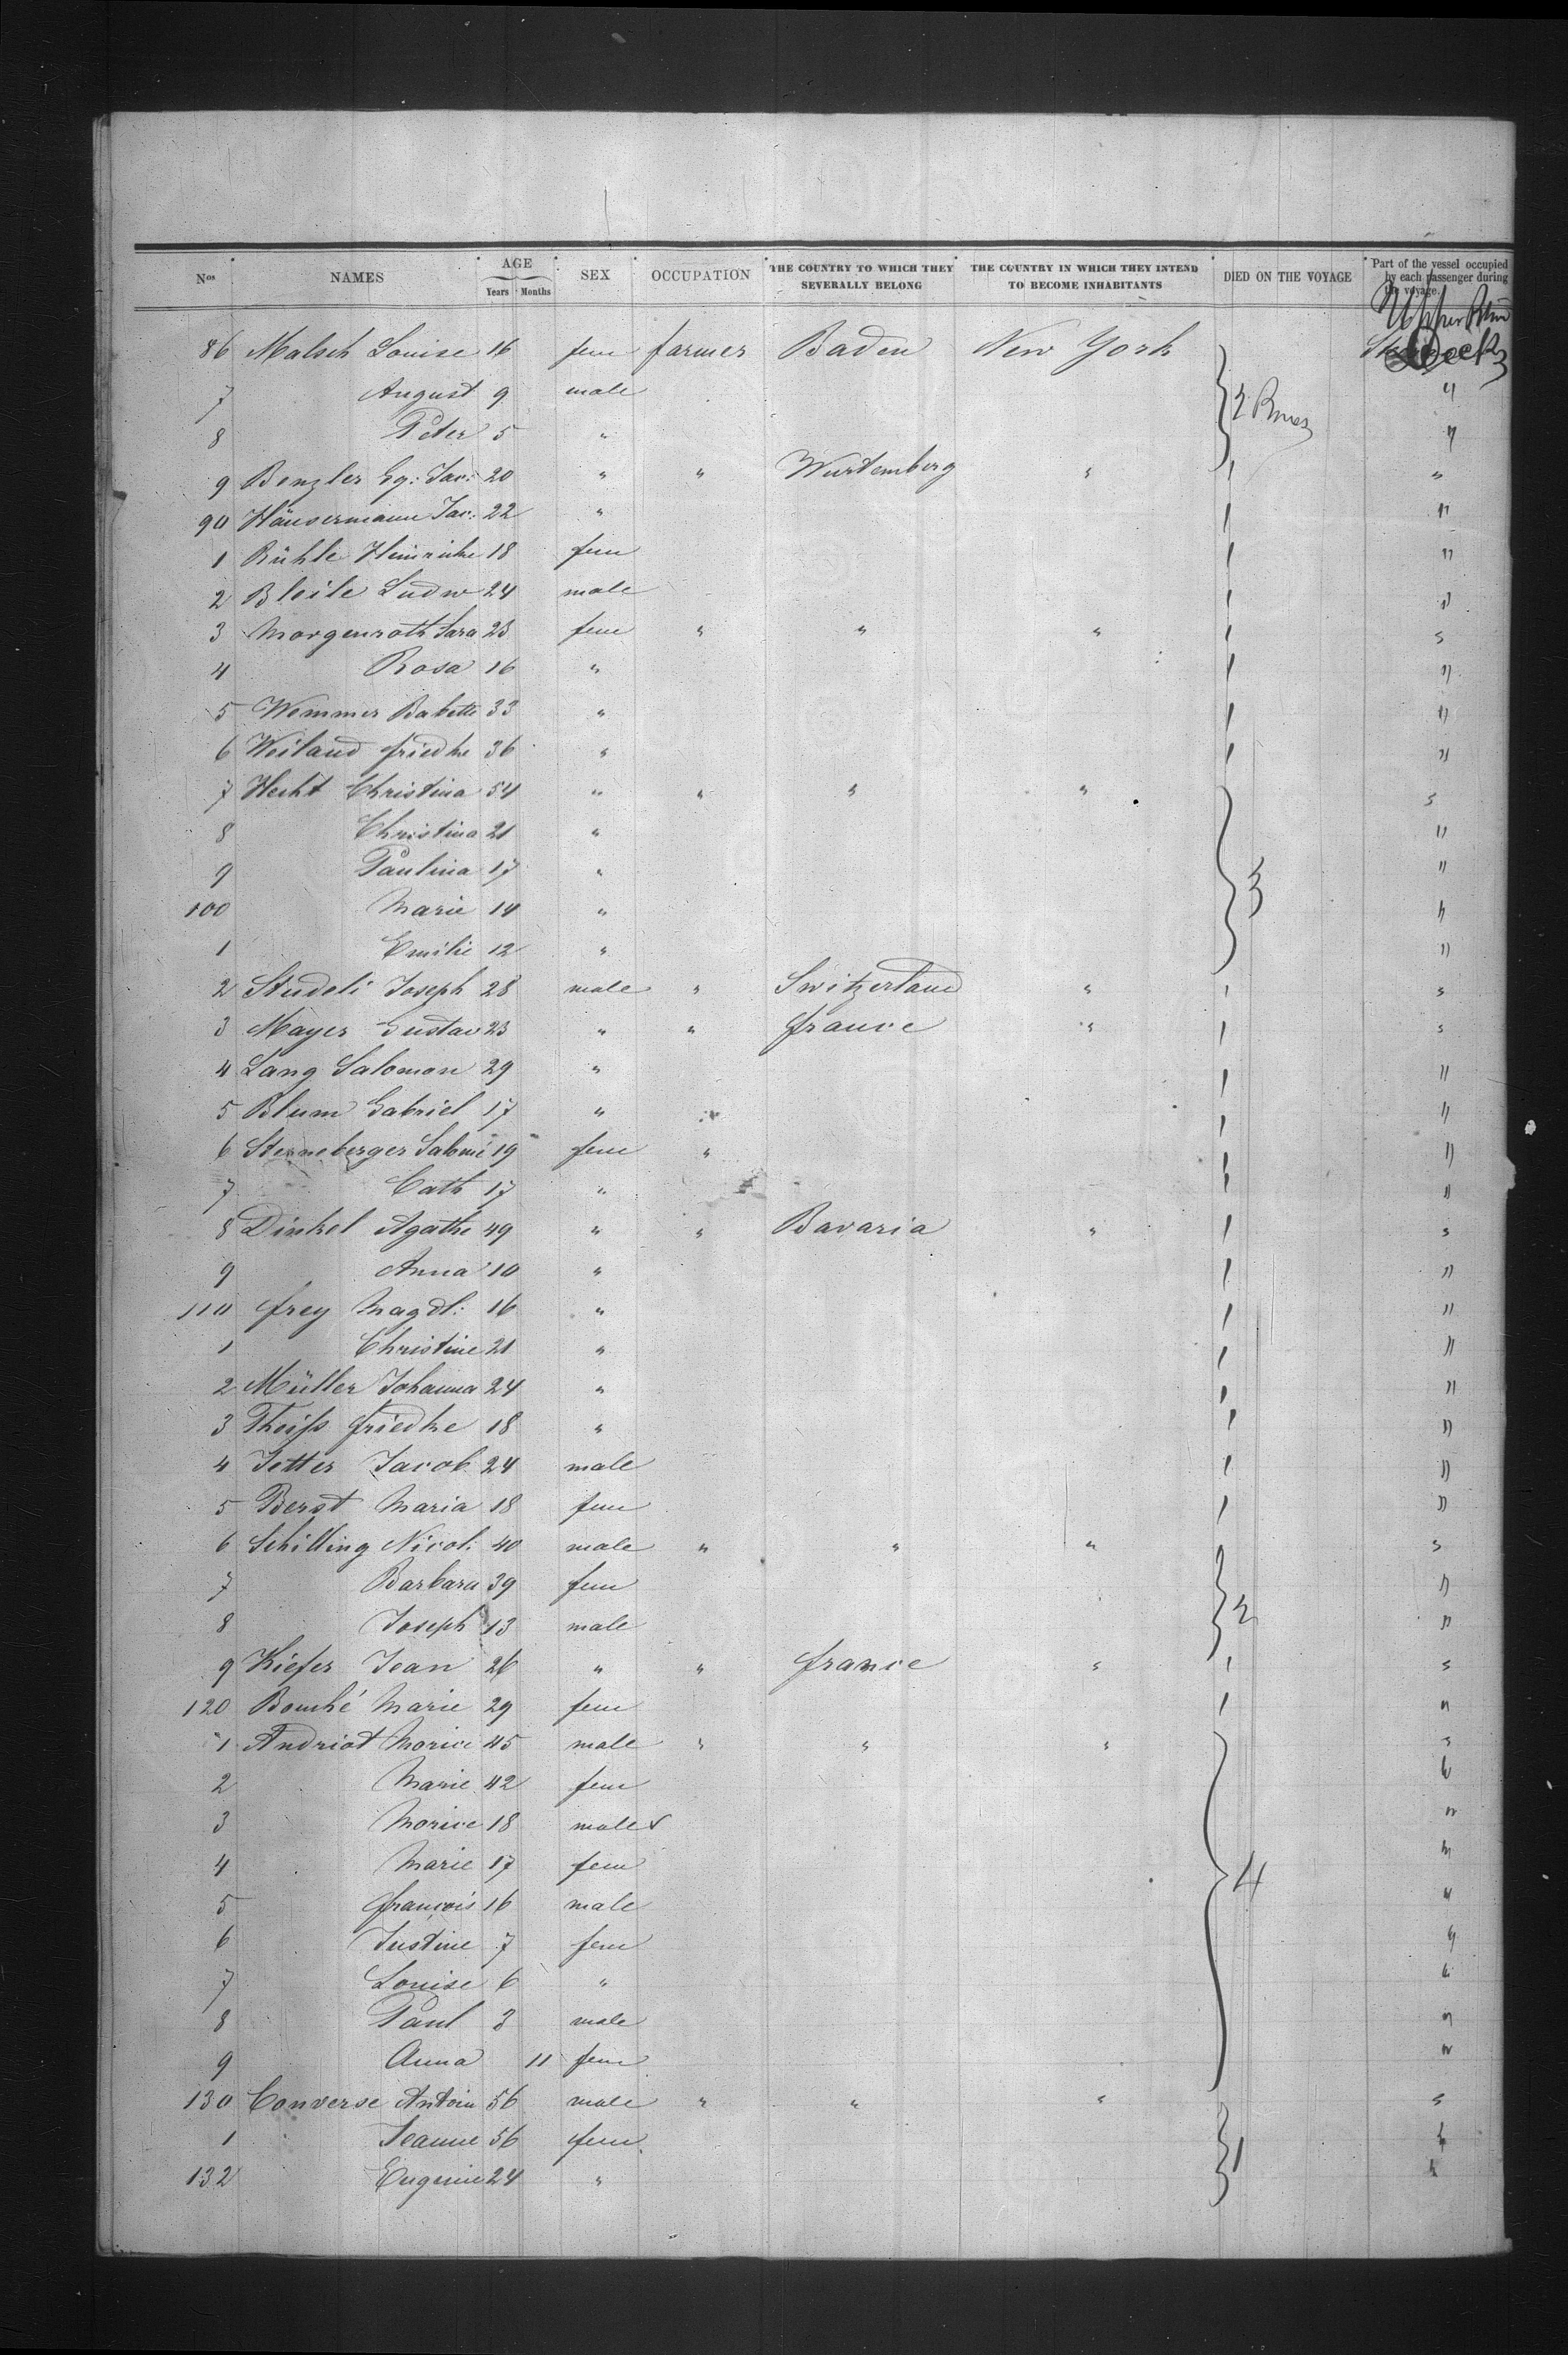 Nos NAMES AGE Years Months SEX OCCUPATION THE COUNTRY TO WHICH THEY SEVERALLY BELONG THE COUNTRY IN WHICH THEY INTEND TO BECOME INHABITANTS DIED ON THE VOYAGE Part of the vessel occupied by each passenger during the voyage.
Upper
86 Malsch Louise 16 fem farmer Baden New York Deck
7 August 9 male 2 "
8 Peter 5 " "
9 Benzler Gg: Jac: 20 " " Wurtemberg " "
90 Häusermann Jac: 22 " "
1 Rühle Heinricke 18 fem "
2 Bleile Ludw 24 male "
3 Morgenroth Sara 23 fem " " " "
4 Rosa 16 " "
5 Wemmer Babette 33 " "
6 Weiland friedke 36 " "
7 Hecht Christina 54 " " " " "
8 Christina 21 " "
9 Paulina 17 " 3 "
100 Marie 14 " "
1 Emilie 12 " "
2 Studeli Joseph 28 male " Switzerland " "
3 Mayer Gustav 23 " " france " "
4 Lang Salomon 29 " "
5 Blum Gabriel 17 " "
6 Sterneberger Salomé 19 fem " "
7 Cath 17 " "
8 Dinkel Agathe 49 " " Bavaria " "
9 Anna 10 " "
110 frey Magdl: 16 " "
1 Christine 21 " "
2 Müller Johanna 24 " "
3 Theiss friedke 18 " "
4 Jetter Jacob 24 male "
5 Berst Maria 18 fem "
6 Schilling Nicol: 40 male " " " "
7 Barbara 39 fem 2 "
8 Joseph 13 male "
9 Kiefer Jean 26 " " france " "
120 Bouché Marie 29 fem "
1 Andriot Morice 45 male " " " "
2 Marie 42 fem "
3 Morice 18 male "
4 Marie 17 fem 4 "
5 françois 16 male "
6 Justine 7 fem "
7 Louise 6 " "
8 Paul 3 male "
9 Anna 11 fem "
130 Converse Antoin 56 male " " " "
1 Jeanne 56 fem 1 "
132 Eugenie 24 " "